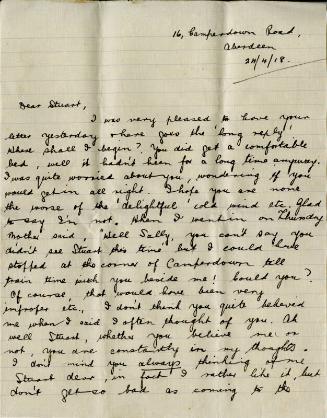 16, Camperdown Road,
Aberdeen
24/4/18.
Dear Stuart,
I was very pleased to have your
letter yesterday & here goes the 'long reply'
Where shall I begin? You did get a comfortable
bed, well it hadn't been for a long time anyway.
I was quite worried about you, wondering if you
would get in all right. I hope you are none
the worse of the 'delightful' cold wind etc. Glad
to say I'm not. When I went in on Thursday
Mother said "Well Sally, you can't say you
didn't see Stuart this time" but I could have
stopped at the corner of Camperdown till
train time with you beside me! Could you?
Of course, that would have been very
improper etc., I don't think you quite believed
me when I said I often thought of you. Ah
well Stuart, whether you believe me or
not, you are constantly in my thoughts.
I don't mind you always thinking of me
Stuart dear, in fact I rather like it, but
don't get so bad as coming to the